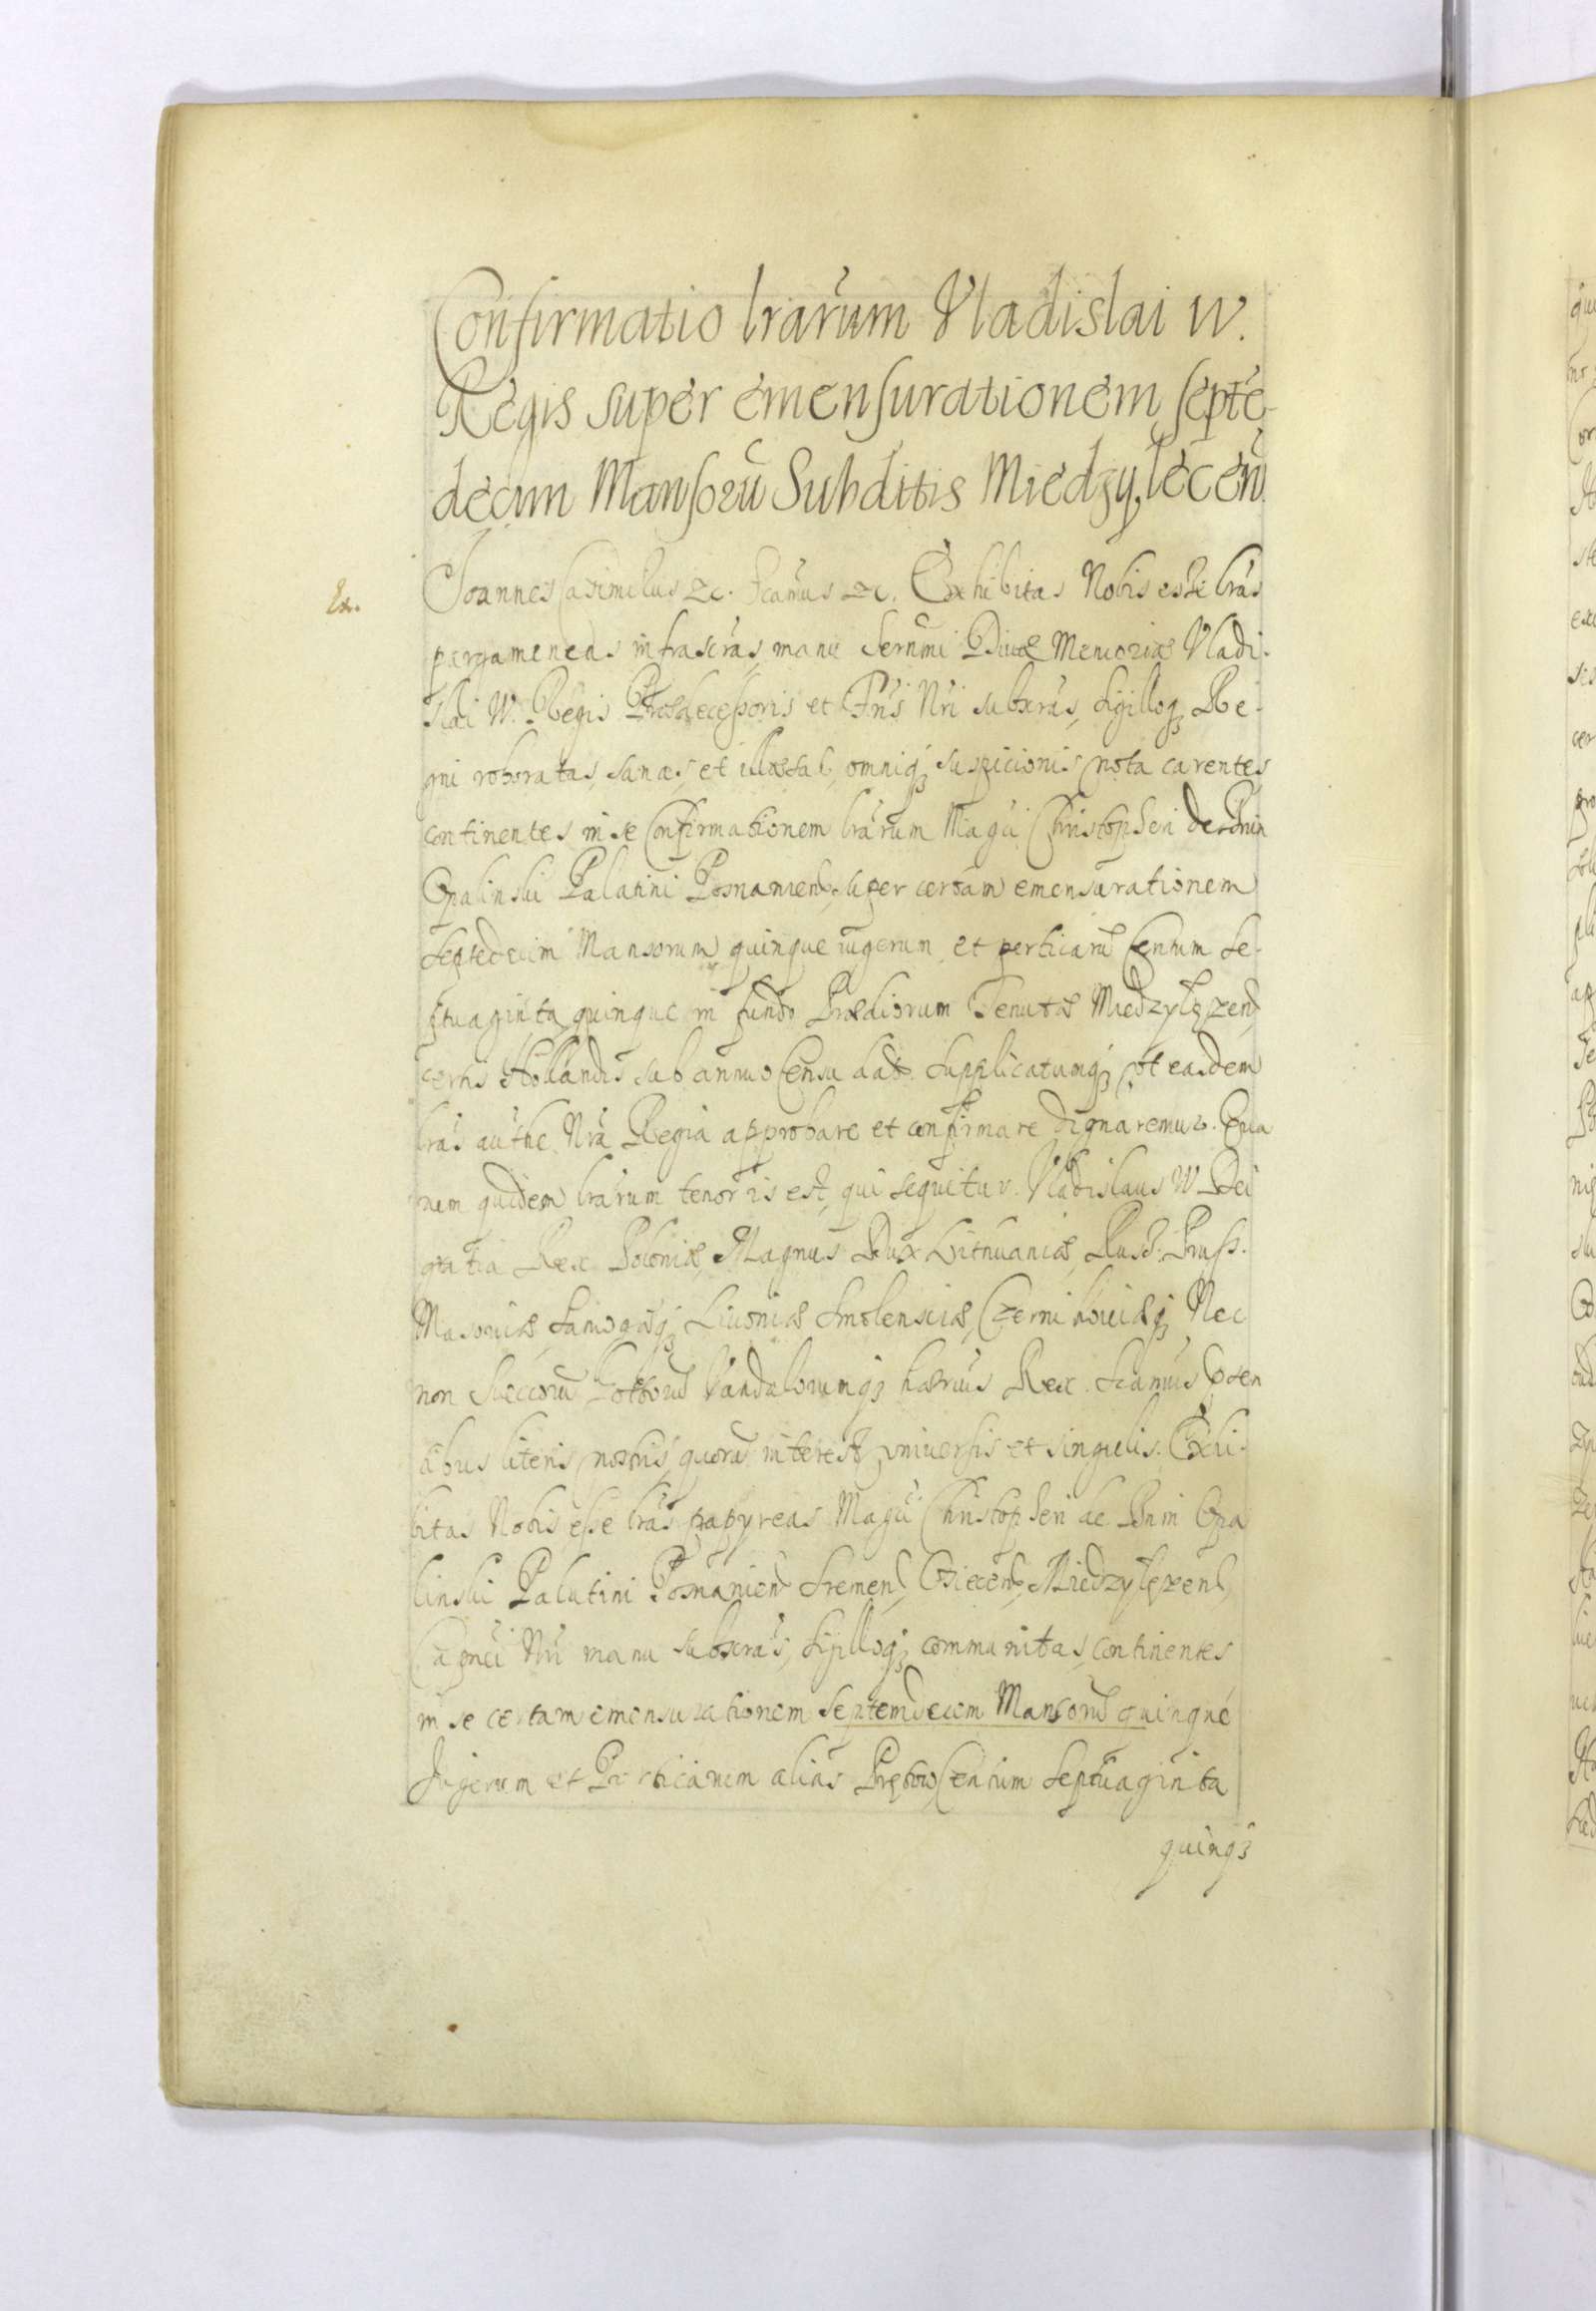 Confirmatio lrarum Vladislai IV.
Regis super emensurationem septe-
decim Mansorū Subditis Miedzylecen.
Ex.
Joannes Casimirus &c. Scamus &c. Exhibitas Nobis esse lras
pargameneas infrascras, manu Sernmi Divæ Memoriæ Vladi-
slai IV. Regis Prædecessoris et Fris Nri subscras, Sigilloq3 Re-
gni roboratas, sanas, et illæsas, omniq3 suspicionis nota carentes
continentes in se Confirmationem lrarum Magci Christopheri de Bnin
Opalinski Palatini Posnanien. super certam emensurationem
Septedecim Mansorum, quinque iugerum, et perticarū Centum se-
ptuaginta quinque in fundo Prædiorum Tenutæ Miedzylęzen.
certis Hollandis sub annuo Censu dat. Supplicatumq3, vt easdem
lras authe Nra Regia approbare et confirmare dignaremur. Qua
rum quidem lrarum tenor is est, qui sequitur. Vladislaus IV Dei
gratia Rex Poloniæ, Magnus Dux Lithuaniæ, Russ. Pruss.
Masoviæ, Samog. q3 Livoniæ Smolensciæ, Czernihoviæq3 Nec
non Suecorū Gottorū Vandalorumq3 hærius Rex. Scamus psen
tibus literis nostris, quorū interest, vniversis et singulis. Exhi-
bitas Nobis esse lras papyreas Magci Christopheri de Bnin Opa
linski Palatini Posnanien. Sremen. Osiecen. Miedzylęzen.
Capnei Nri manu subscras, Sigilloq3 communitas, continentes
in se certam emensurationem Septemdecem Mansorū quinque
Jugerum et Perticarum alias Prętow Centum Septuaginta
quinq3